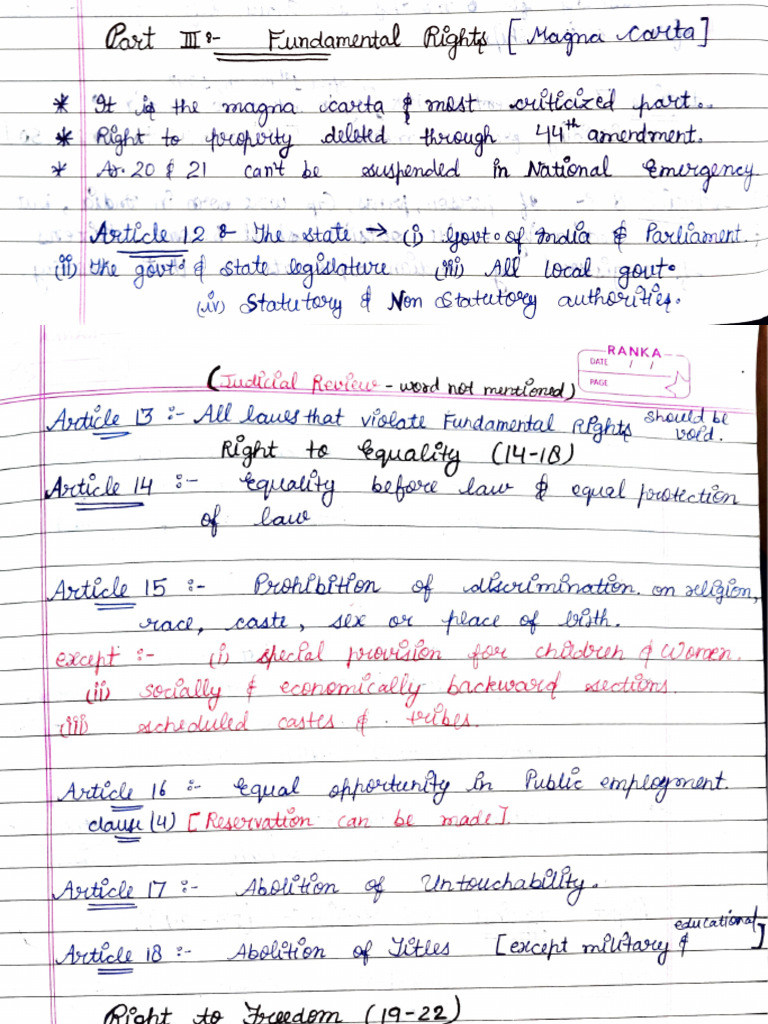 Part III :- Fundamental Rights [Magna Carta]
* It is the magna carta & most criticized part..
* Right to property deleted through 44th amendment.
* Ar. 20 & 21 can't be suspended in National Emergency
Article 12 :- The state → (i) Govt. of India & Parliament.
(ii) the govt. & state legislature (iii) All local govt.
(iv) Statutory & Non Statutory authorities.
RANKA
DATE / /
PAGE
(Judicial Review - word not mentioned)
Article 13 :- All laws that violate Fundamental Rights should be void.
Right to Equality (14-18)
Article 14 :- Equality before law & equal protection
of law
Article 15 :- Prohibition of discrimination on religion,
race, caste, sex or place of birth.
except :- (i) special provision for children & Women.
(ii) socially & economically backward sections.
(iii) scheduled castes & tribes.
Article 16 :- Equal opportunity in Public employment.
clause (4) [Reservation can be made].
Article 17 :- Abolition of Untouchability.
Article 18 :- Abolition of Titles [except military & educational]
Right to Freedom (19-22)